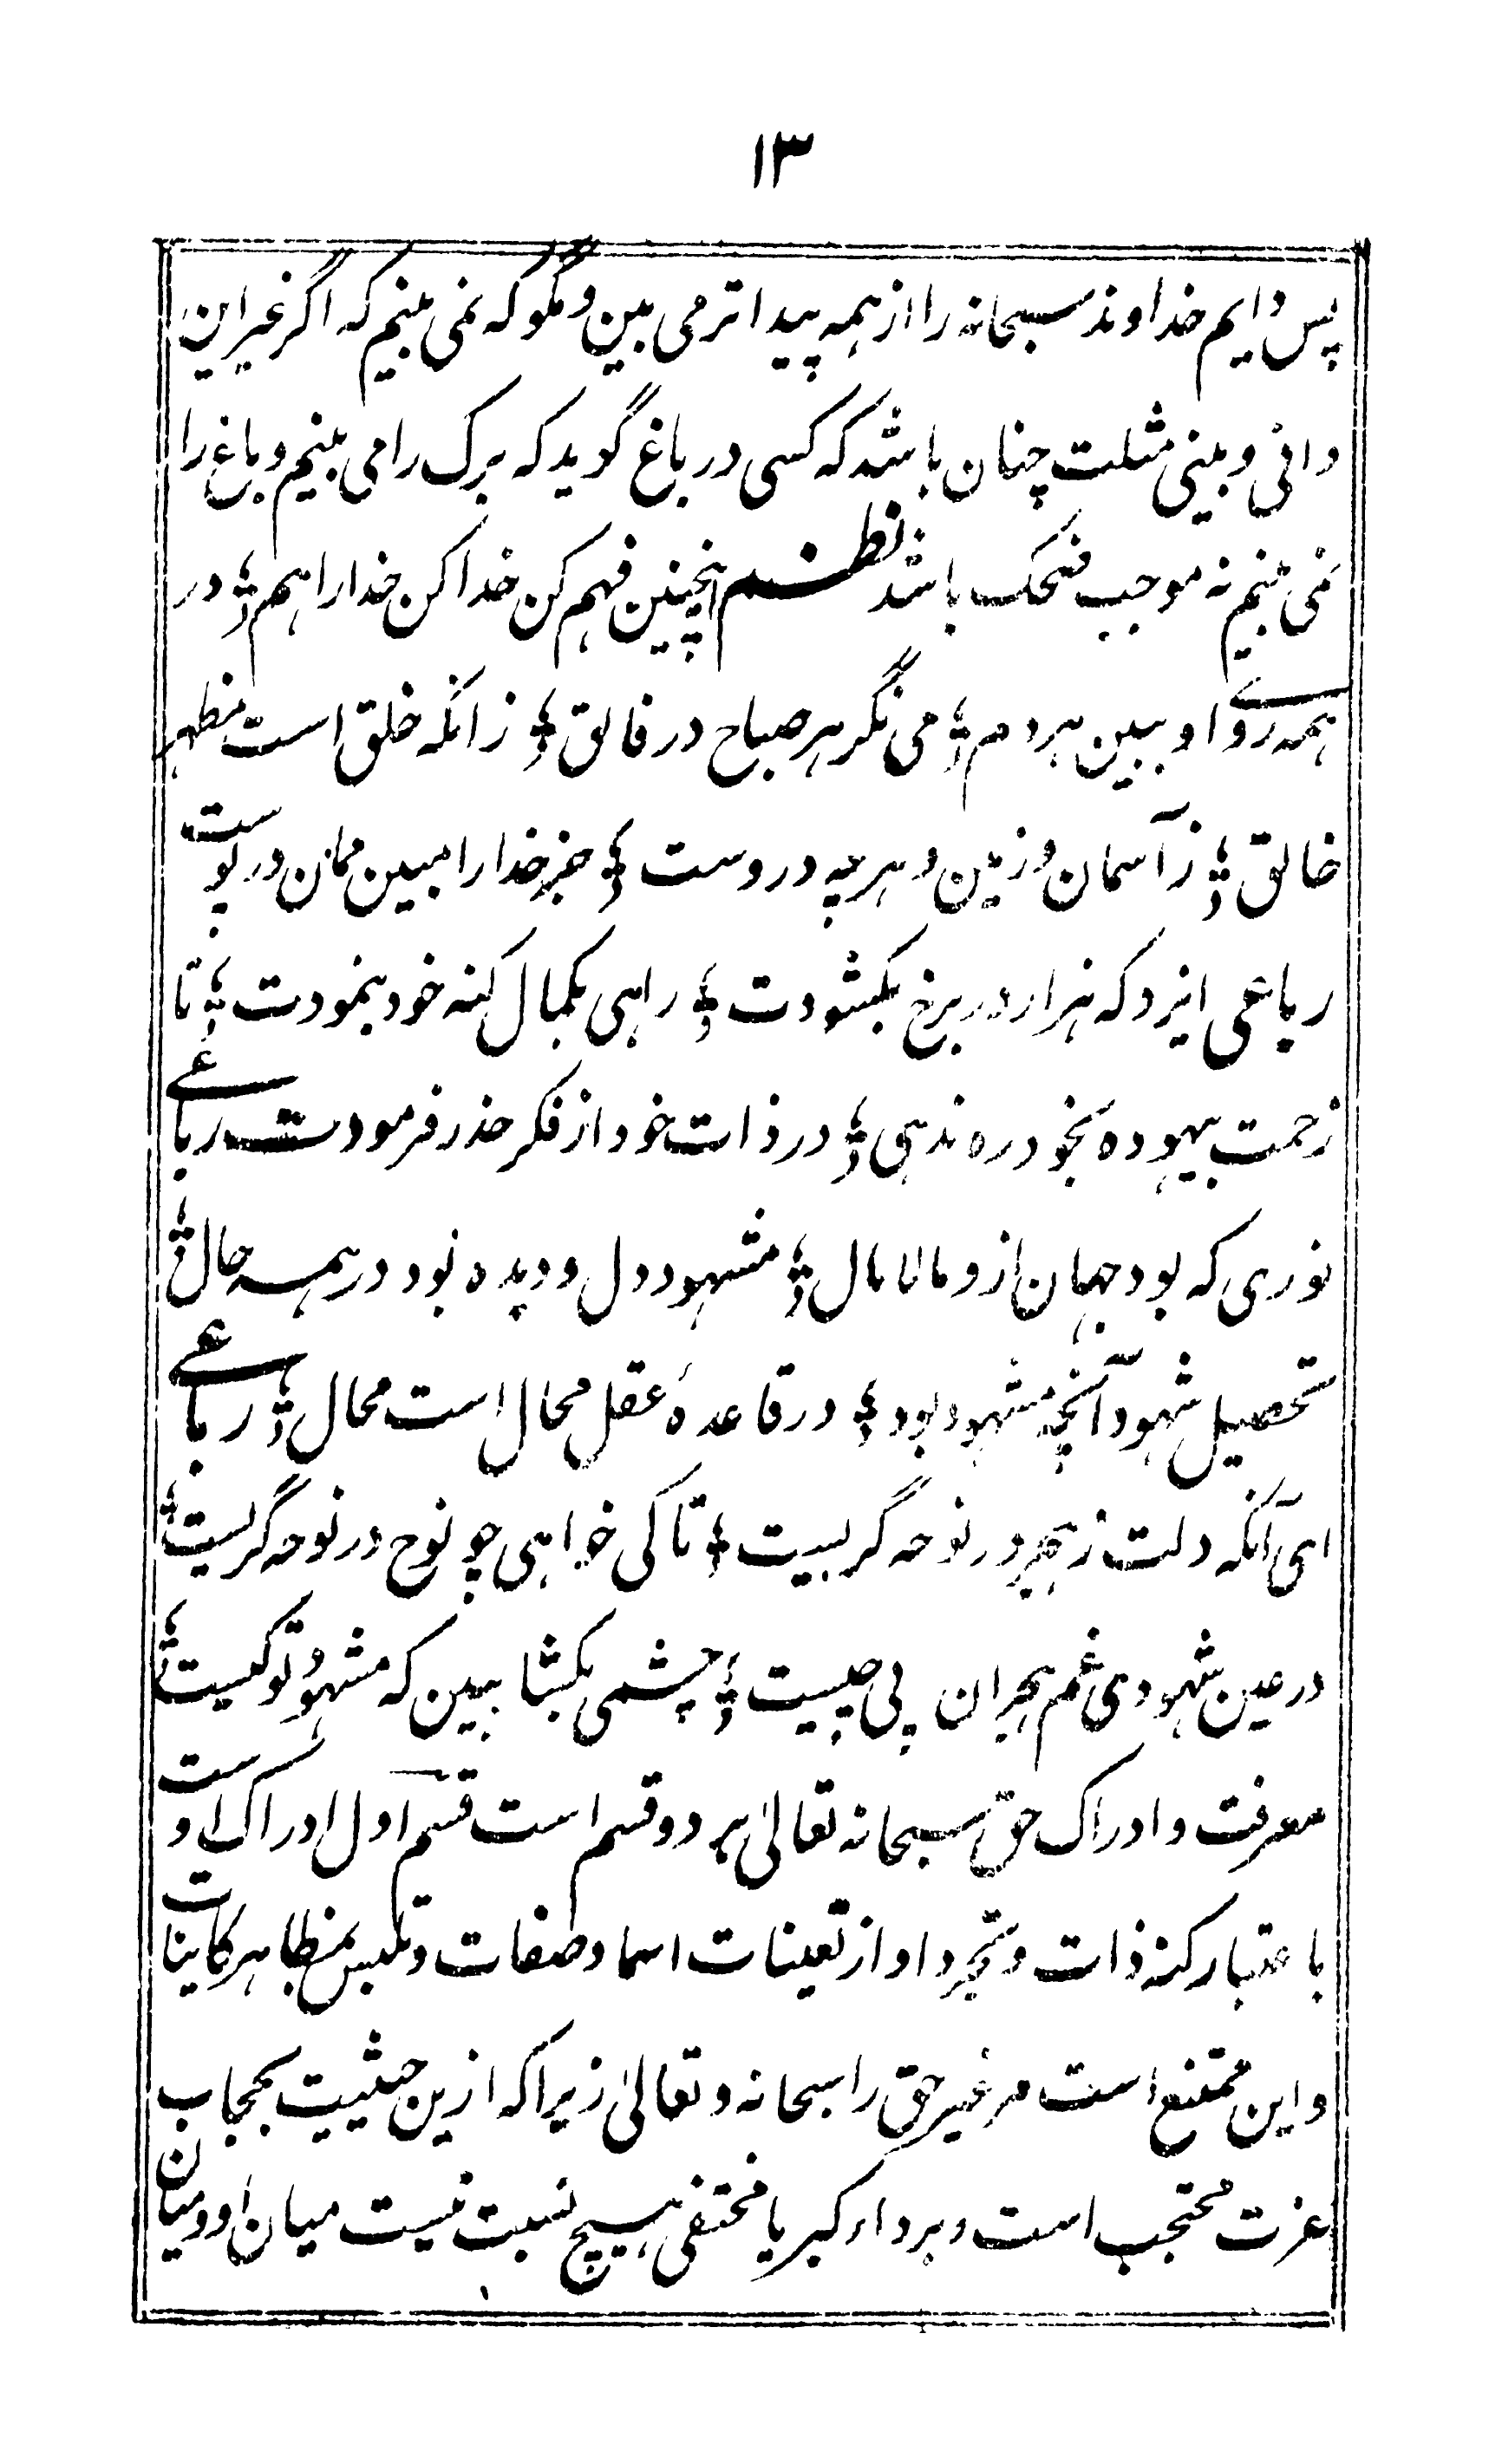 ۱۳
پس دایم خداوند سبحانه را از همه پیداتر می بین و مگو که نمی بینم که اگر غیر این
دانی و بینی مثلت چنان باشد که کسی در باغ گوید که برگ را می بینم و باغ را
نمی بینم نه موجب ضحک باشد نظم اینچنین فهم کن خدا کن خدا را هم ؛ در
همه روے او ببین هر دم ؛ می نگر هر صباح در فالق ؛ زانکه خلق است مظهر
خالق ؛ ز آسمان و زمین و هرچه دروست ؛ جز خدا را مبین ممان در پوست
رباعی ایزد که هزار در برخ بکشودت ؛ راهی بکمال کنه خود ننمودت ؛ تا
زحمت بیهوده بخود ره ندهی ؛ در ذات خود از فکر حذر فرمودت رباعے
نوری که بود جهان ازو مالامال ؛ مشهود دل و دیده بود در همه حال ؛
تحصیل شهود آنچه مشهود بود ؛ در قاعدهٔ عقل محال است محال ؛ رباعے
ای آنکه دلت ز هجر در نوحه گریست ؛ تا کی خواهی چو نوح در نوحه گریست ؛
در عین شهودی غم هجران پی چیست ؛ چشمی بکشا ببین که مشهود تو کیست ؛
معرفت و ادراک حق سبحانه تعالیٰ بر دو قسم است قسم اول ادراک اوست
باعتبار کنه ذات و تجرد او از تعینات اسما و صفات و تلبس بمظاهر کاینات
و این ممتنع است مر غیر حق را سبحانه و تعالیٰ زیرا که ازین حیثیت بحجاب
عزت محتجب است و برداء کبریا مختفی هیچ نسبت نیست میان او و میان